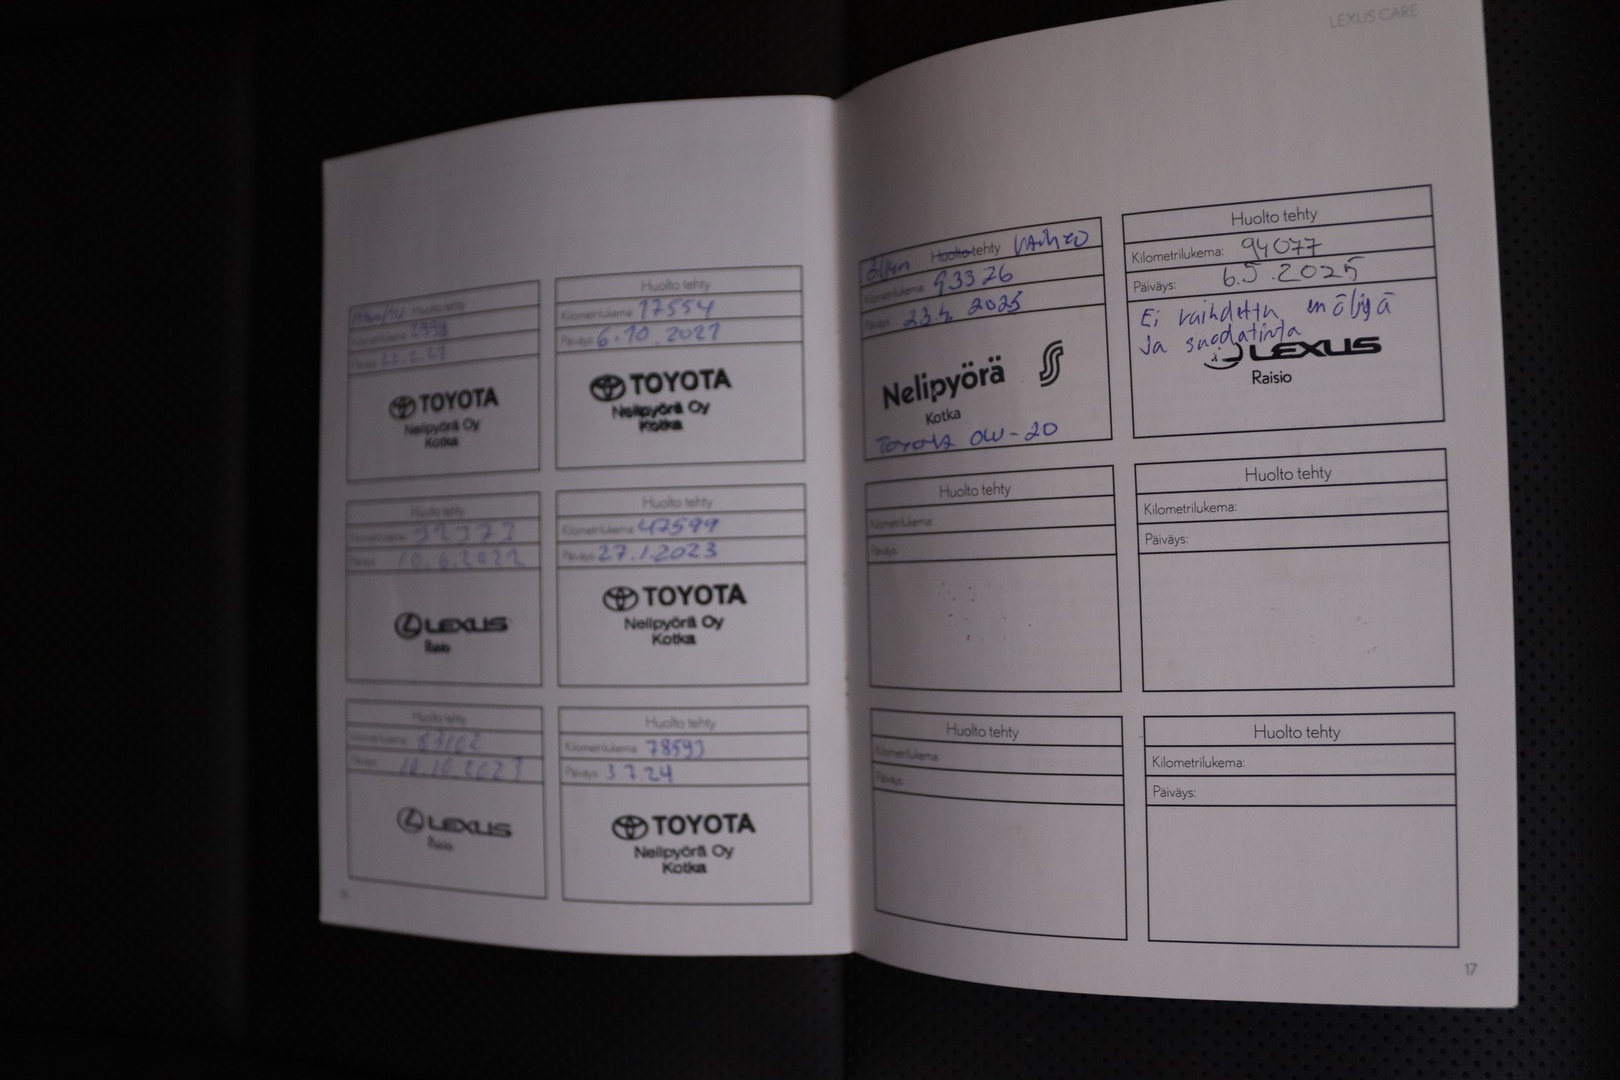 LEXUS CARE
Huolto tehty
2998
22.2.21
TOYOTA
Nelipyörä Oy
Kotka
Huolto tehty
Kilometrilukema: 17554
Päiväys: 6.10.2021
TOYOTA
Nelipyörä Oy
Kotka
Huolto tehty
Kilometrilukema:
Päiväys: 10.6.2022
LEXUS
Raisio
Huolto tehty
Kilometrilukema: 47599
Päiväys: 27.1.2023
TOYOTA
Nelipyörä Oy
Kotka
Huolto tehty
Kilometrilukema:
Päiväys: 2023
LEXUS
Raisio
Huolto tehty
Kilometrilukema: 78593
Päiväys: 3.7.24
TOYOTA
Nelipyörä Oy
Kotka
öljyn Huolto tehty vaihto
Kilometrilukema: 93326
Päiväys: 23.4.2025
Nelipyörä
Kotka
Toyota 0W-20
Huolto tehty
Kilometrilukema: 94077
Päiväys: 6.5.2025
Ei vaihdettu enöljyä
ja suodatinta
LEXUS
Raisio
Huolto tehty
Kilometrilukema:
Päiväys:
Huolto tehty
Kilometrilukema:
Päiväys:
Huolto tehty
Kilometrilukema:
Päiväys:
Huolto tehty
Kilometrilukema:
Päiväys:
17